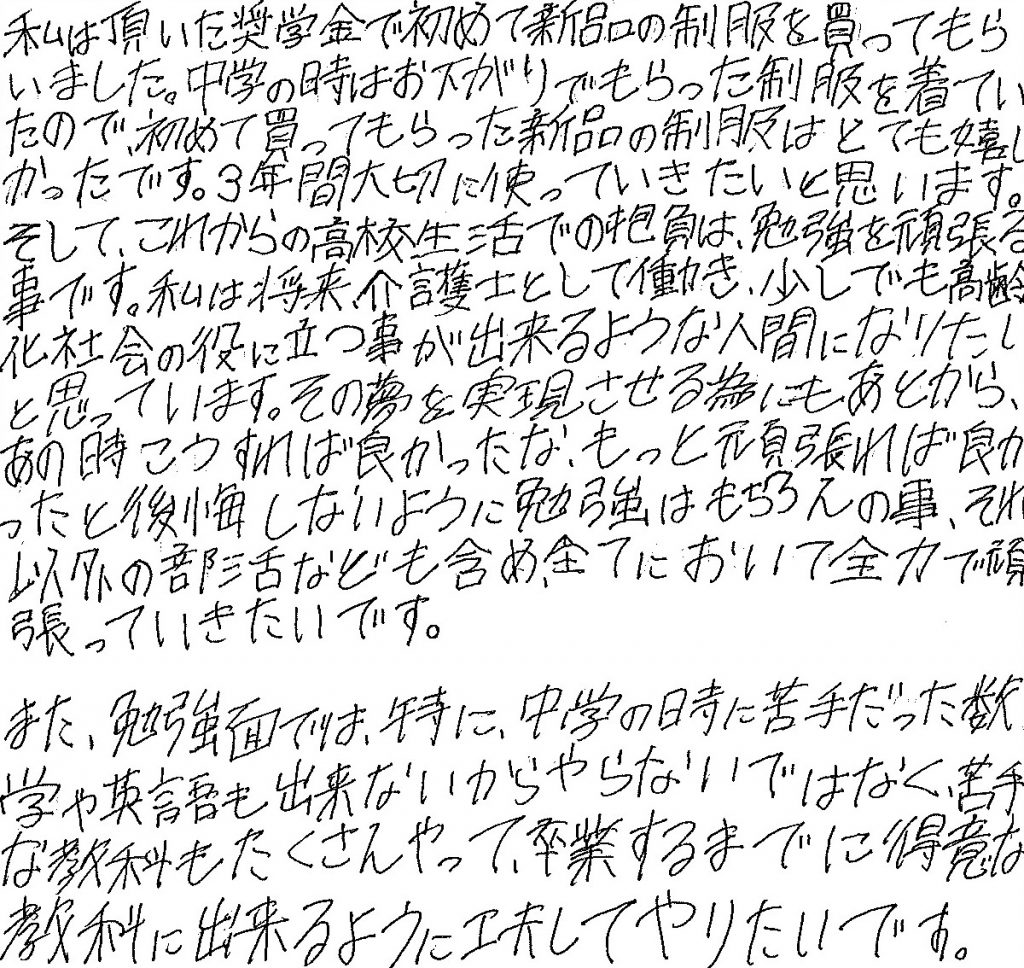 私は頂いた奨学金で初めて新品の制服を買ってもら
いました。中学の時はお下がりでもらった制服を着てい
たので、初めて買ってもらった新品の制服はとても嬉し
かったです。3年間大切に使っていきたいと思います。
そして、これからの高校生活での抱負は、勉強を頑張る
事です。私は将来、介護士として働き、少しでも高齢
化社会の役に立つ事が出来るような人間になりたい
と思っています。その夢を実現させる為にも、あとから、
あの時こうすれば良かったな、もっと頑張れば良か
ったと後悔しないように勉強はもちろんの事、それ
以外の部活なども含め、全てにおいて全力で頑
張っていきたいです。
また、勉強面では、特に、中学の時に苦手だった数
学や英語も出来ないからやらないではなく、苦手
な教科もたくさんやって、卒業するまでに得意な
教科に出来るように工夫してやりたいです。